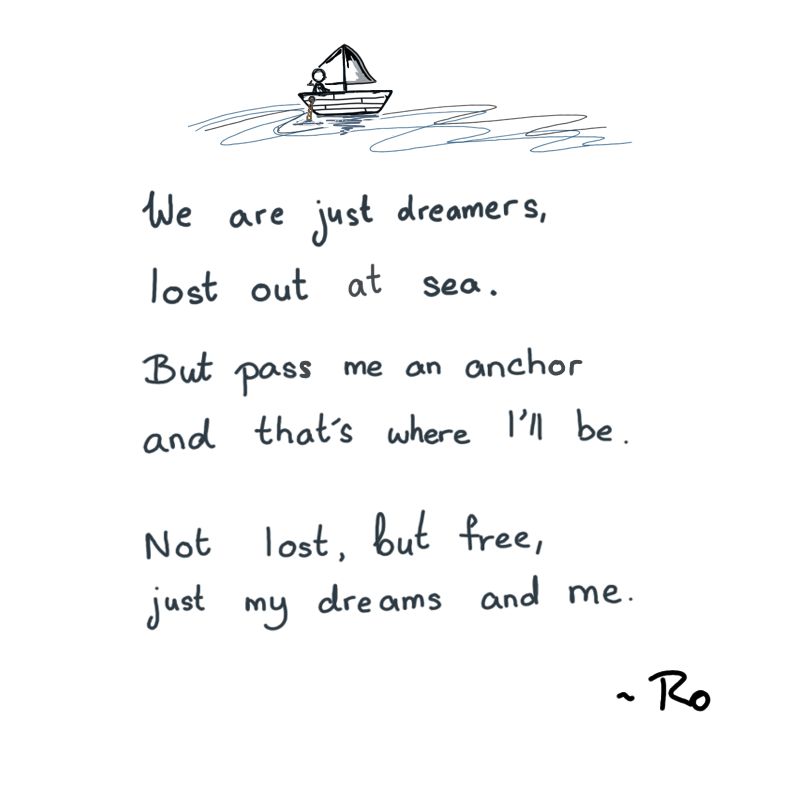 We are just dreamers,
lost out at sea.
But pass me an anchor
and that's where I'll be.
Not lost, but free,
just my dreams and me.
~ Ro